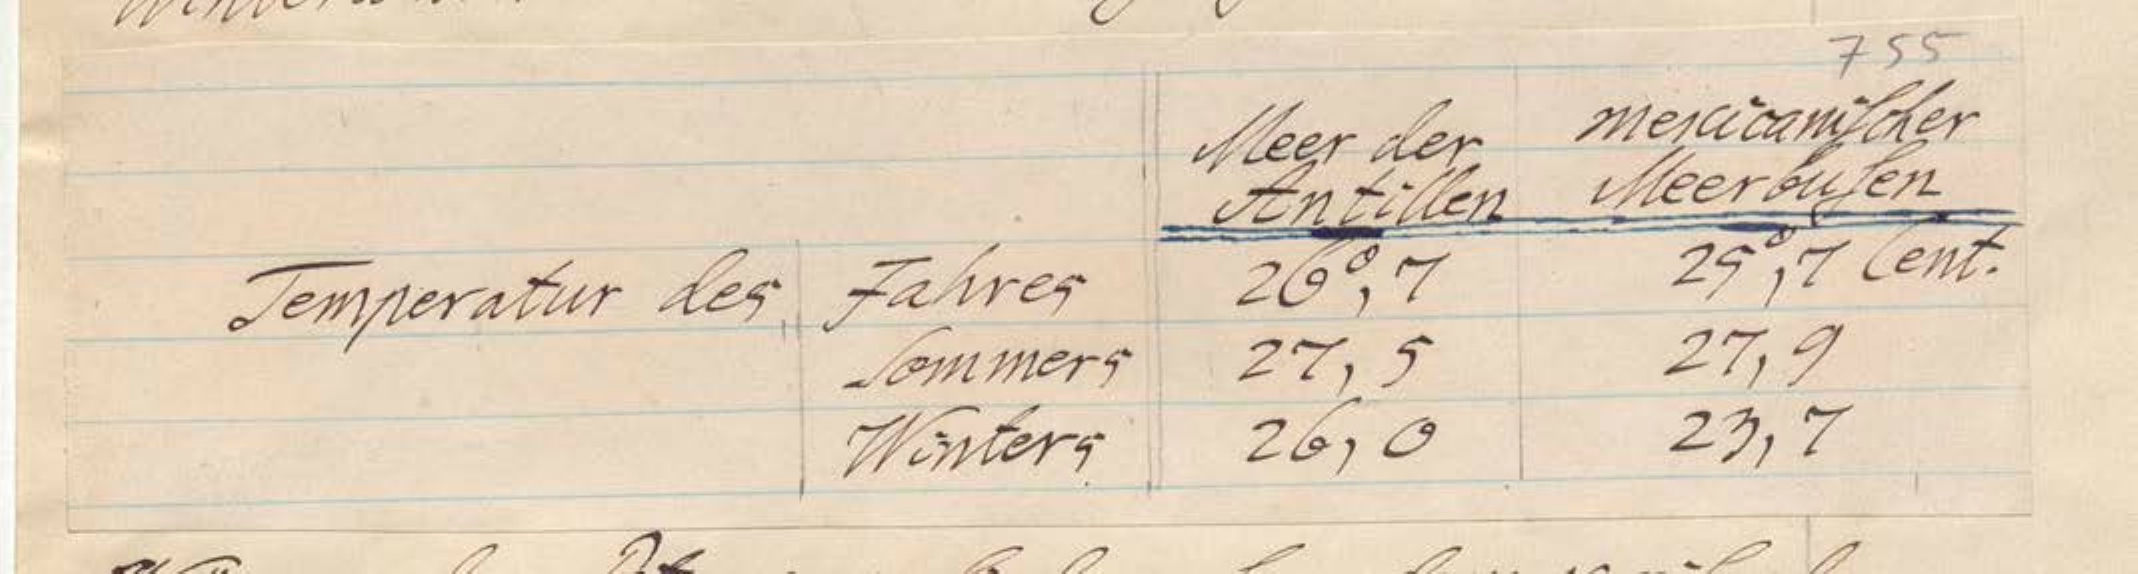 755
Meer der mexicanischer
Antillen Meerbusen
Temperatur des Jahres 26°,7 25°,7 Cent.
Sommers 27,5 27,9
Winters 26,0 23,7